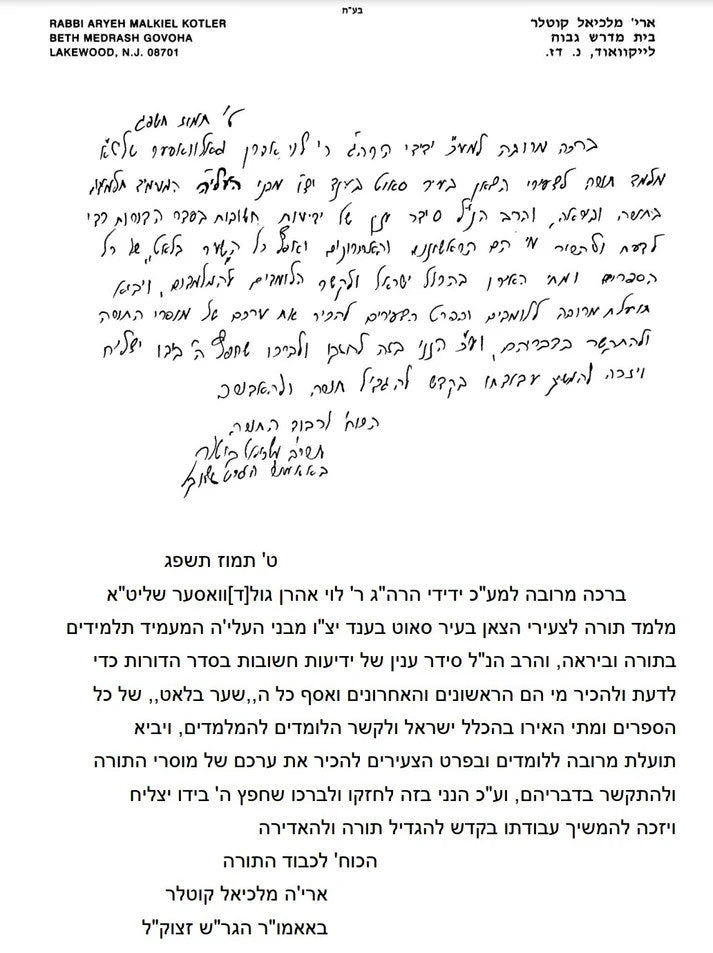 בע"ח
RABBI ARYEH MALKIEL KOTLER
BETH MEDRASH GOVOHA
LAKEWOOD, N.J. 08701
ארי' מלכיאל קוטלר
בית מדרש גבוה
לייקוואוד, נ. דז.
ט' תמוז תשפג
ברכה מרובה למע"כ ידידי הרה"ג ר' לוי אהרן גולוואסער שליט"א
מלמד תורה לצעירי הצאן בעיר סאוט בענד יצ"ו מבני העלי'ה המעמיד תלמידים
בתורה וביראה, והרב הנ"ל סידר ענין של ידיעות חשובות בסדר הדורות כדי
לדעת ולהכיר מי הם הראשונים והאחרונים ואסף כל ה,,שער בלאט,, של כל
הספרים ומתי האירו בהכלל ישראל ולקשר הלומדים להמלמדים, ויביא
תועלת מרובה ללומדים ובפרט הצעירים להכיר את ערכם של מוסרי התורה
ולהתקשר בדבריהם, וע"כ הנני בזה לחזקו ולברכו שחפץ ה' בידו יצליח
ויזכה להמשיך עבודתו בקדש להגדיל תורה ולהאדירה
הכוח' לכבוד התורה
ארי'ה מלכיאל קוטלר
באאמו"ר הגר"ש זצוק"ל
ט' תמוז תשפג
ברכה מרובה למע"כ ידידי הרה"ג ר' לוי אהרן גול[ד]וואסער שליט"א
מלמד תורה לצעירי הצאן בעיר סאוט בענד יצ"ו מבני העלי'ה המעמיד תלמידים
בתורה וביראה, והרב הנ"ל סידר ענין של ידיעות חשובות בסדר הדורות כדי
לדעת ולהכיר מי הם הראשונים והאחרונים ואסף כל ה,,שער בלאט,, של כל
הספרים ומתי האירו בהכלל ישראל ולקשר הלומדים להמלמדים, ויביא
תועלת מרובה ללומדים ובפרט הצעירים להכיר את ערכם של מוסרי התורה
ולהתקשר בדבריהם, וע"כ הנני בזה לחזקו ולברכו שחפץ ה' בידו יצליח
ויזכה להמשיך עבודתו בקדש להגדיל תורה ולהאדירה
הכוח' לכבוד התורה
ארי'ה מלכיאל קוטלר
באאמו"ר הגר"ש זצוק"ל